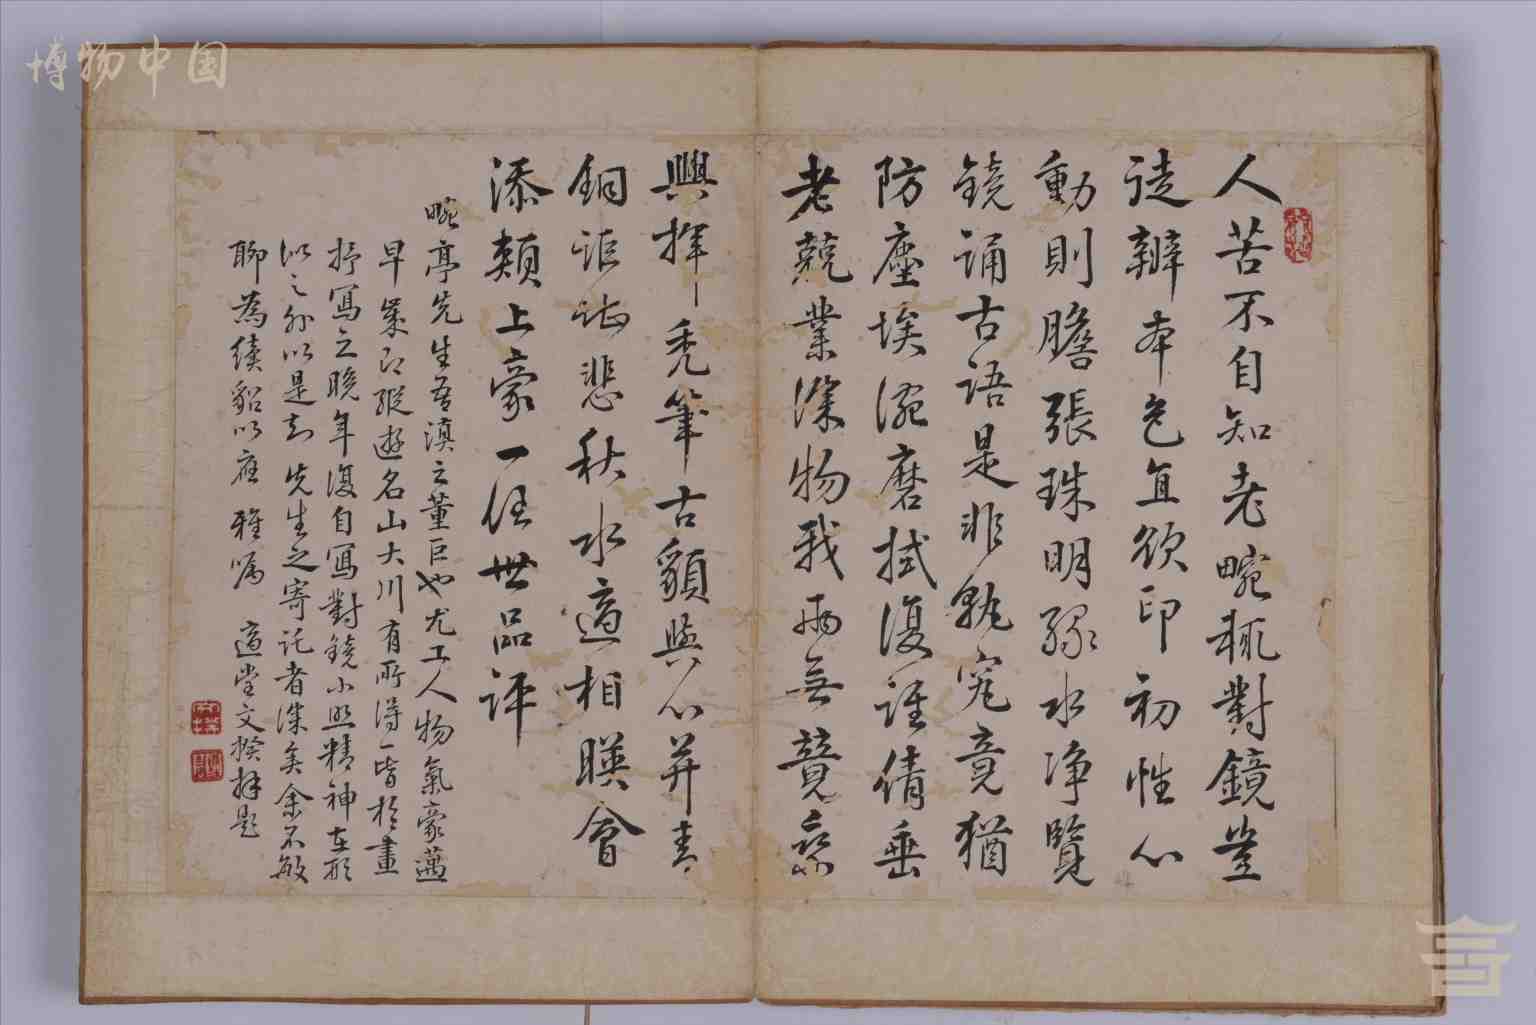 博物中国
人苦不自知老畹輒對鏡豈
徒辨本色直欲印初性心
動則膽張珠明豁水淨覽
鏡誦古語是非孰究竟猶
防塵埃淹磨拭復誰倩垂
老兢業深物我兩無競
興揮一禿筆古貌與心并青
銅詎詠悲秋水適相暎會
添頰上豪一任世品評
畹亭先生吾滇之董巨也尤工人物氣豪邁
早歲即縱遊名山大川有所得一皆於畫
抒寫之晚年復自寫對鏡小照精神在形
似之外以是知先生之寄託者深矣余不敏
聊為續貂以應雅囑 適堂文揆拜題